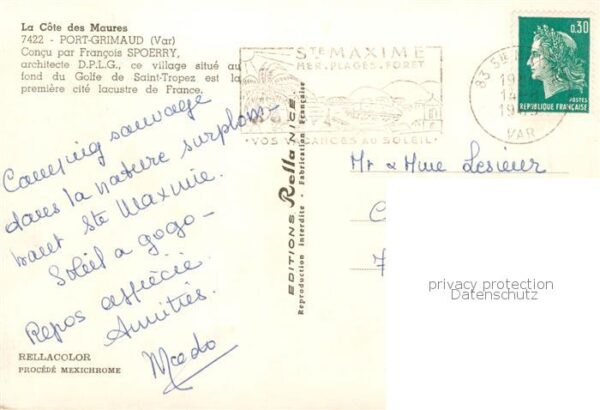 La Côte des Maures
7422 - PORT-GRIMAUD (Var)
Conçu par François SPOERRY,
architecte D.P.L.G., ce village situé au
fond du Golfe de Saint-Tropez est la
première cité lacustre de France.
Camping sauvage
dans la nature surplom-
bant Ste Maxime.
Soleil a gogo -
Repos apprécié.
Amitiés.
Mado
RELLACOLOR
PROCÉDÉ MEXICHROME
EDITIONS Rella NICE
Reproduction interdite - Fabrication Française
STE MAXIME
MER. PLAGES. FORET
VOS VACANCES AU SOLEIL
83 STE
VAR
0,30
POSTES
REPUBLIQUE FRANÇAISE
Mr & Mme Lesieur
privacy protection
Datenschutz